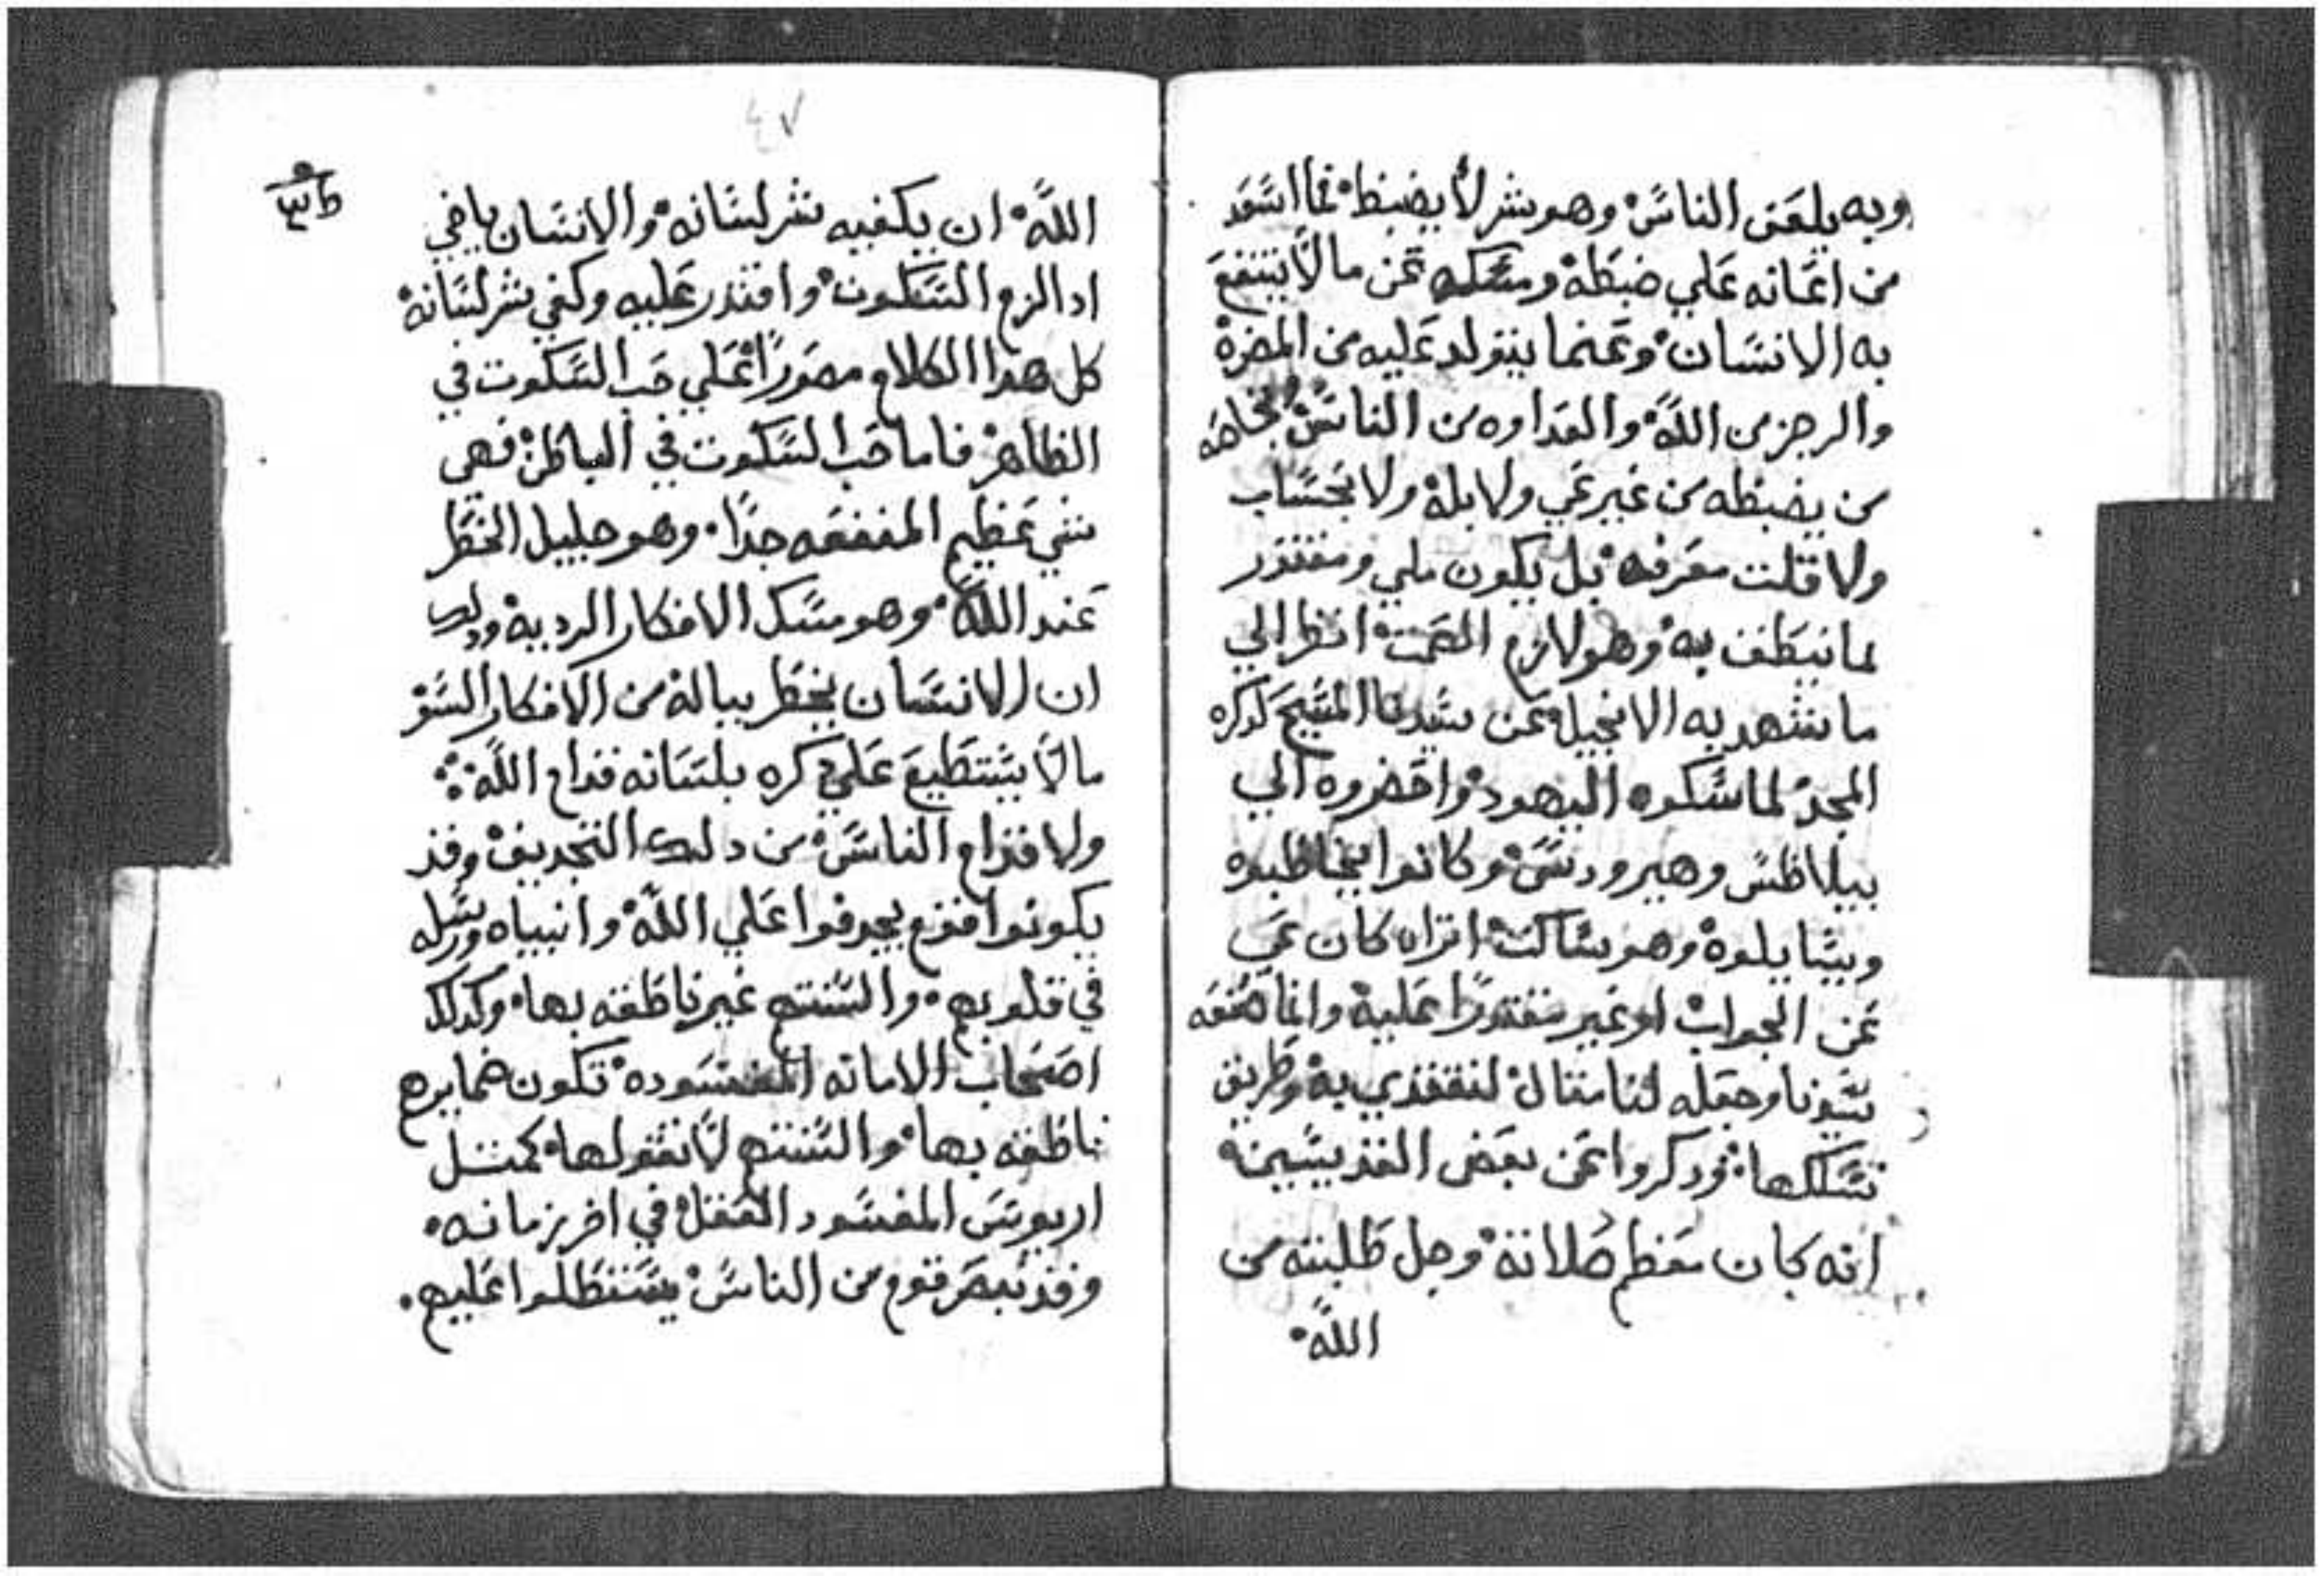 وبه يلعن الناس وهو شر لا يضبط فما اسعد
من اعانه علي ضبطه ومسكه عن ما لا ينتفع
به الانسان وعنما يتولد عليه من المضرة
والرجز من الله والعداوه من الناس
من يضبطه من غير عي ولا بله ولا بحساب
ولا قلت معرفه بل يكون ملي ومقتدر
لما ينطق به وهو لازم الصمت انظر الي
ما يشهد به الانجيل عن سيدنا المسيح لدكره
المجد لما مسكوه اليهود واحضروه الي
بيلاطس وهيرودس وكانوا يخاطبوه
ويسايلوه وهو ساكت اتراه كان عي
عن الجواب او غير مقتدرا عليه وانما
سيدنا وجعله لنا مثال لنقتدي به وطريق
نسلكها ودكروا عن بعض القديسين
انه كان معظم صلاته وجل طلبته من
الله
٤٧
الله ان يكفيه شر لسانه والانسان يا اخي
ادا لزم السكوت واقتدر عليه وكفي شر لسانه
كل هدا الكلام مصورا علي حب السكوت في
الظاهر فاما حب السكوت في الباطن فهي
شي عظيم المنفعه جدا وهو جليل الخطر
عند الله وهو مسك الافكار الرديه ودلك
ان الانسان يخطر بباله من الافكار السو
ما لا يستطيع علي دكره بلسانه قدام الله
ولا قدام الناس من دلك التجديف وقد
يكونوا قوم يجدفوا علي الله وانبياه ورسله
في قلوبهم والسنتهم غير ناطقه بها وكدلك
اصحاب الامانه المفسوده تكون ضمايرهم
ناطقه بها والسنتهم لا تقولها كمثل
اريوس المفسود العقل في اخر زمانه
وقد نبصر قوم من الناس يستطلوا عليهم